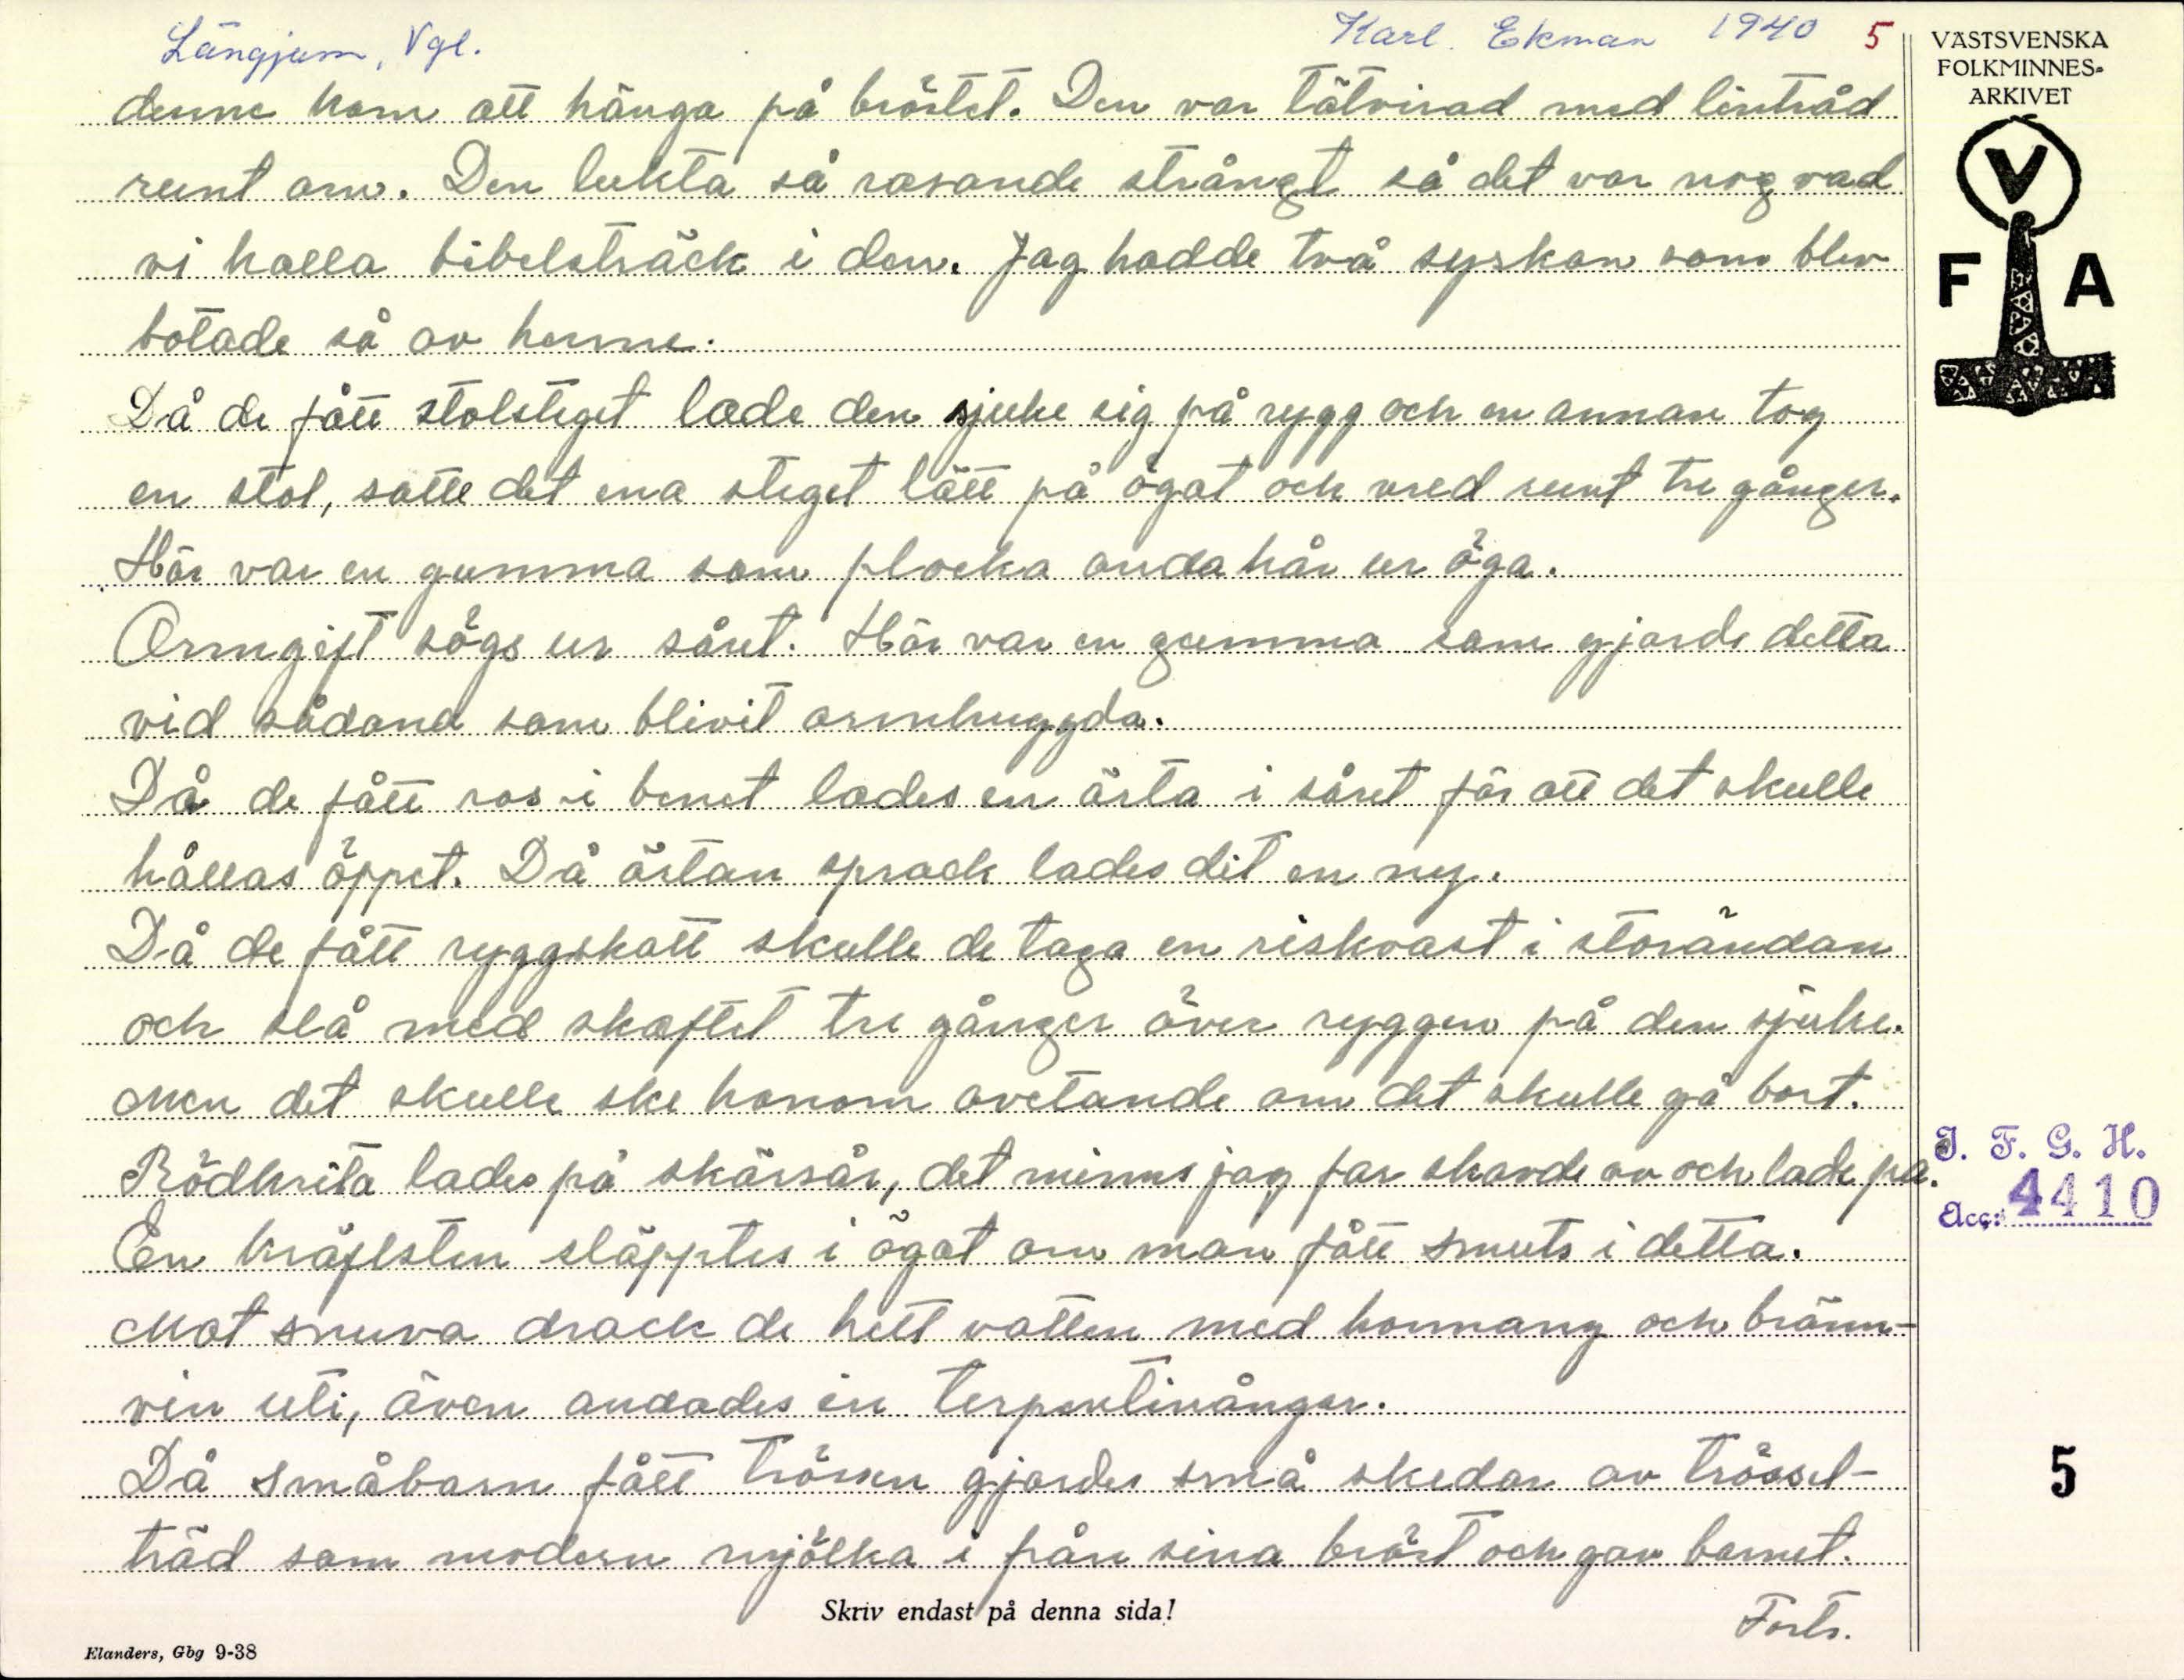 Längjum, Vgl.
Karl Ekman 1940 5
denne kom att hänga på bröstet. Den var tätvirad med lintråd
runt om. Den lukta så rasande strångt så det var nog vad
vi kalla bibelsträck i den. Jag hadde två syskon som blev
botade så av henne.
Då de fått stolsteget lade den sjuke sig på rygg och en annan tog
en stol, satte det ena steget lätt på ögat och vred runt tre gånger.
Här var en gumma som plocka onda hår ur öga.
Ormgift sögs ur såret. Här var en gumma som gjorde detta
vid sådana som blivit ormhuggda.
Då de fått ros i benet lades en ärta i såret för att det skulle
hållas öppet. Då ärtan sprack lades dit en ny.
Då de fått ryggskott skulle de taga en riskvast i storändan
och slå med skaftet tre gånger över ryggen på den sjuke.
Men det skulle ske honom ovetande om det skulle gå bort.
Rödkrita lades på skärsår, det minns jag far skavde av och lade på.
En kräftsten släpptes i ögat om man fått smuts i detta.
Mot snuva drack de hett vatten med honnang och bränn-
vin uti, även andades in terpentinångor.
Då småbarn fått trösken gjordes små skedar av trössel-
träd som modern mjölka i från sina bröst och gav barnet.
Forts.
Skriv endast på denna sida!
Elanders, Gbg 9-38
VÄSTSVENSKA
FOLKMINNES-
ARKIVET
V
F A
I. F. G. H.
Acc: 4410
5